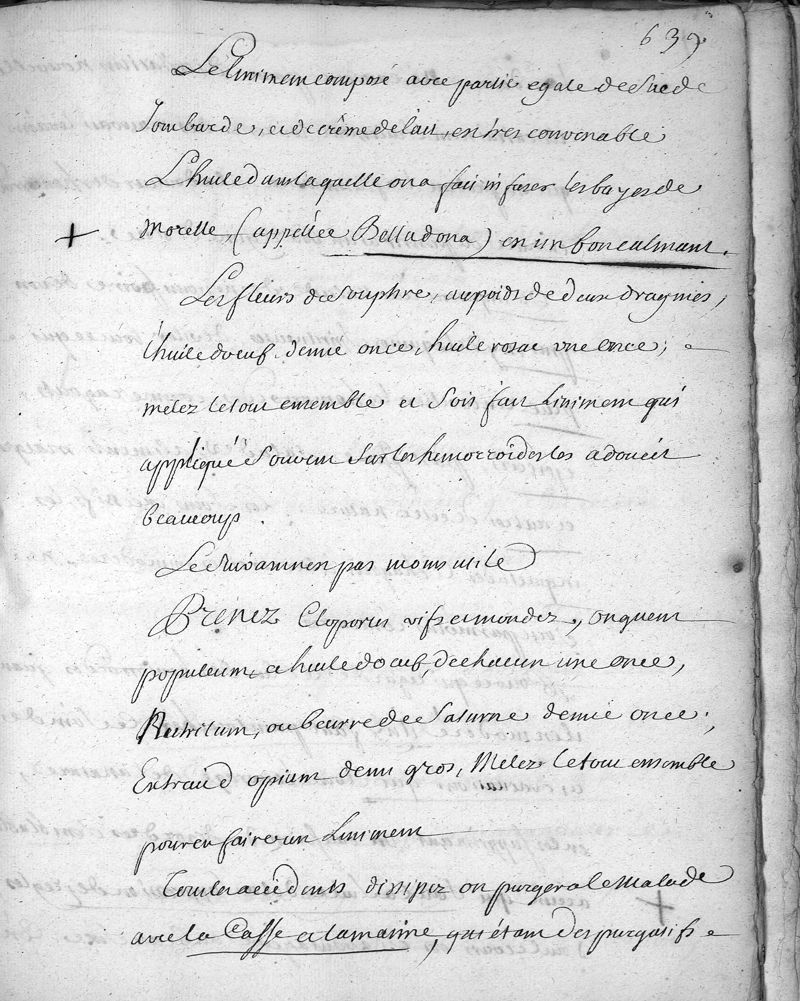 639
Le liniment composé avec partie egale de suc de
Joubarde, et de crême de lait, est tres convenable
L'huile dans laquelle on a fait infuser les bayes de
+ Morelle, (appellée Belladona) est un bon calmant.
Les fleurs de souphre, au poids de deux dragmes,
l'huile d'oeuf demie once, huile rosat une once;
mêlez le tout ensemble et soit fait Liniment qui
appliqué souvent sur les hemorroides les adoucit
beaucoup.
Le suivant n'est pas moins utile
Prenez Cloportes vifs et mondez, onguent
populeum, et huile d'oeuf, de chacun une once,
Nutritum, ou beurre de Saturne demie once;
Extrait d'opium demi gros, Mélez le tout ensemble
pour en faire un Liniment
Tous les accidents dissipez on purgera le malade
avec la Casse et la manne, qui étant des purgatifs